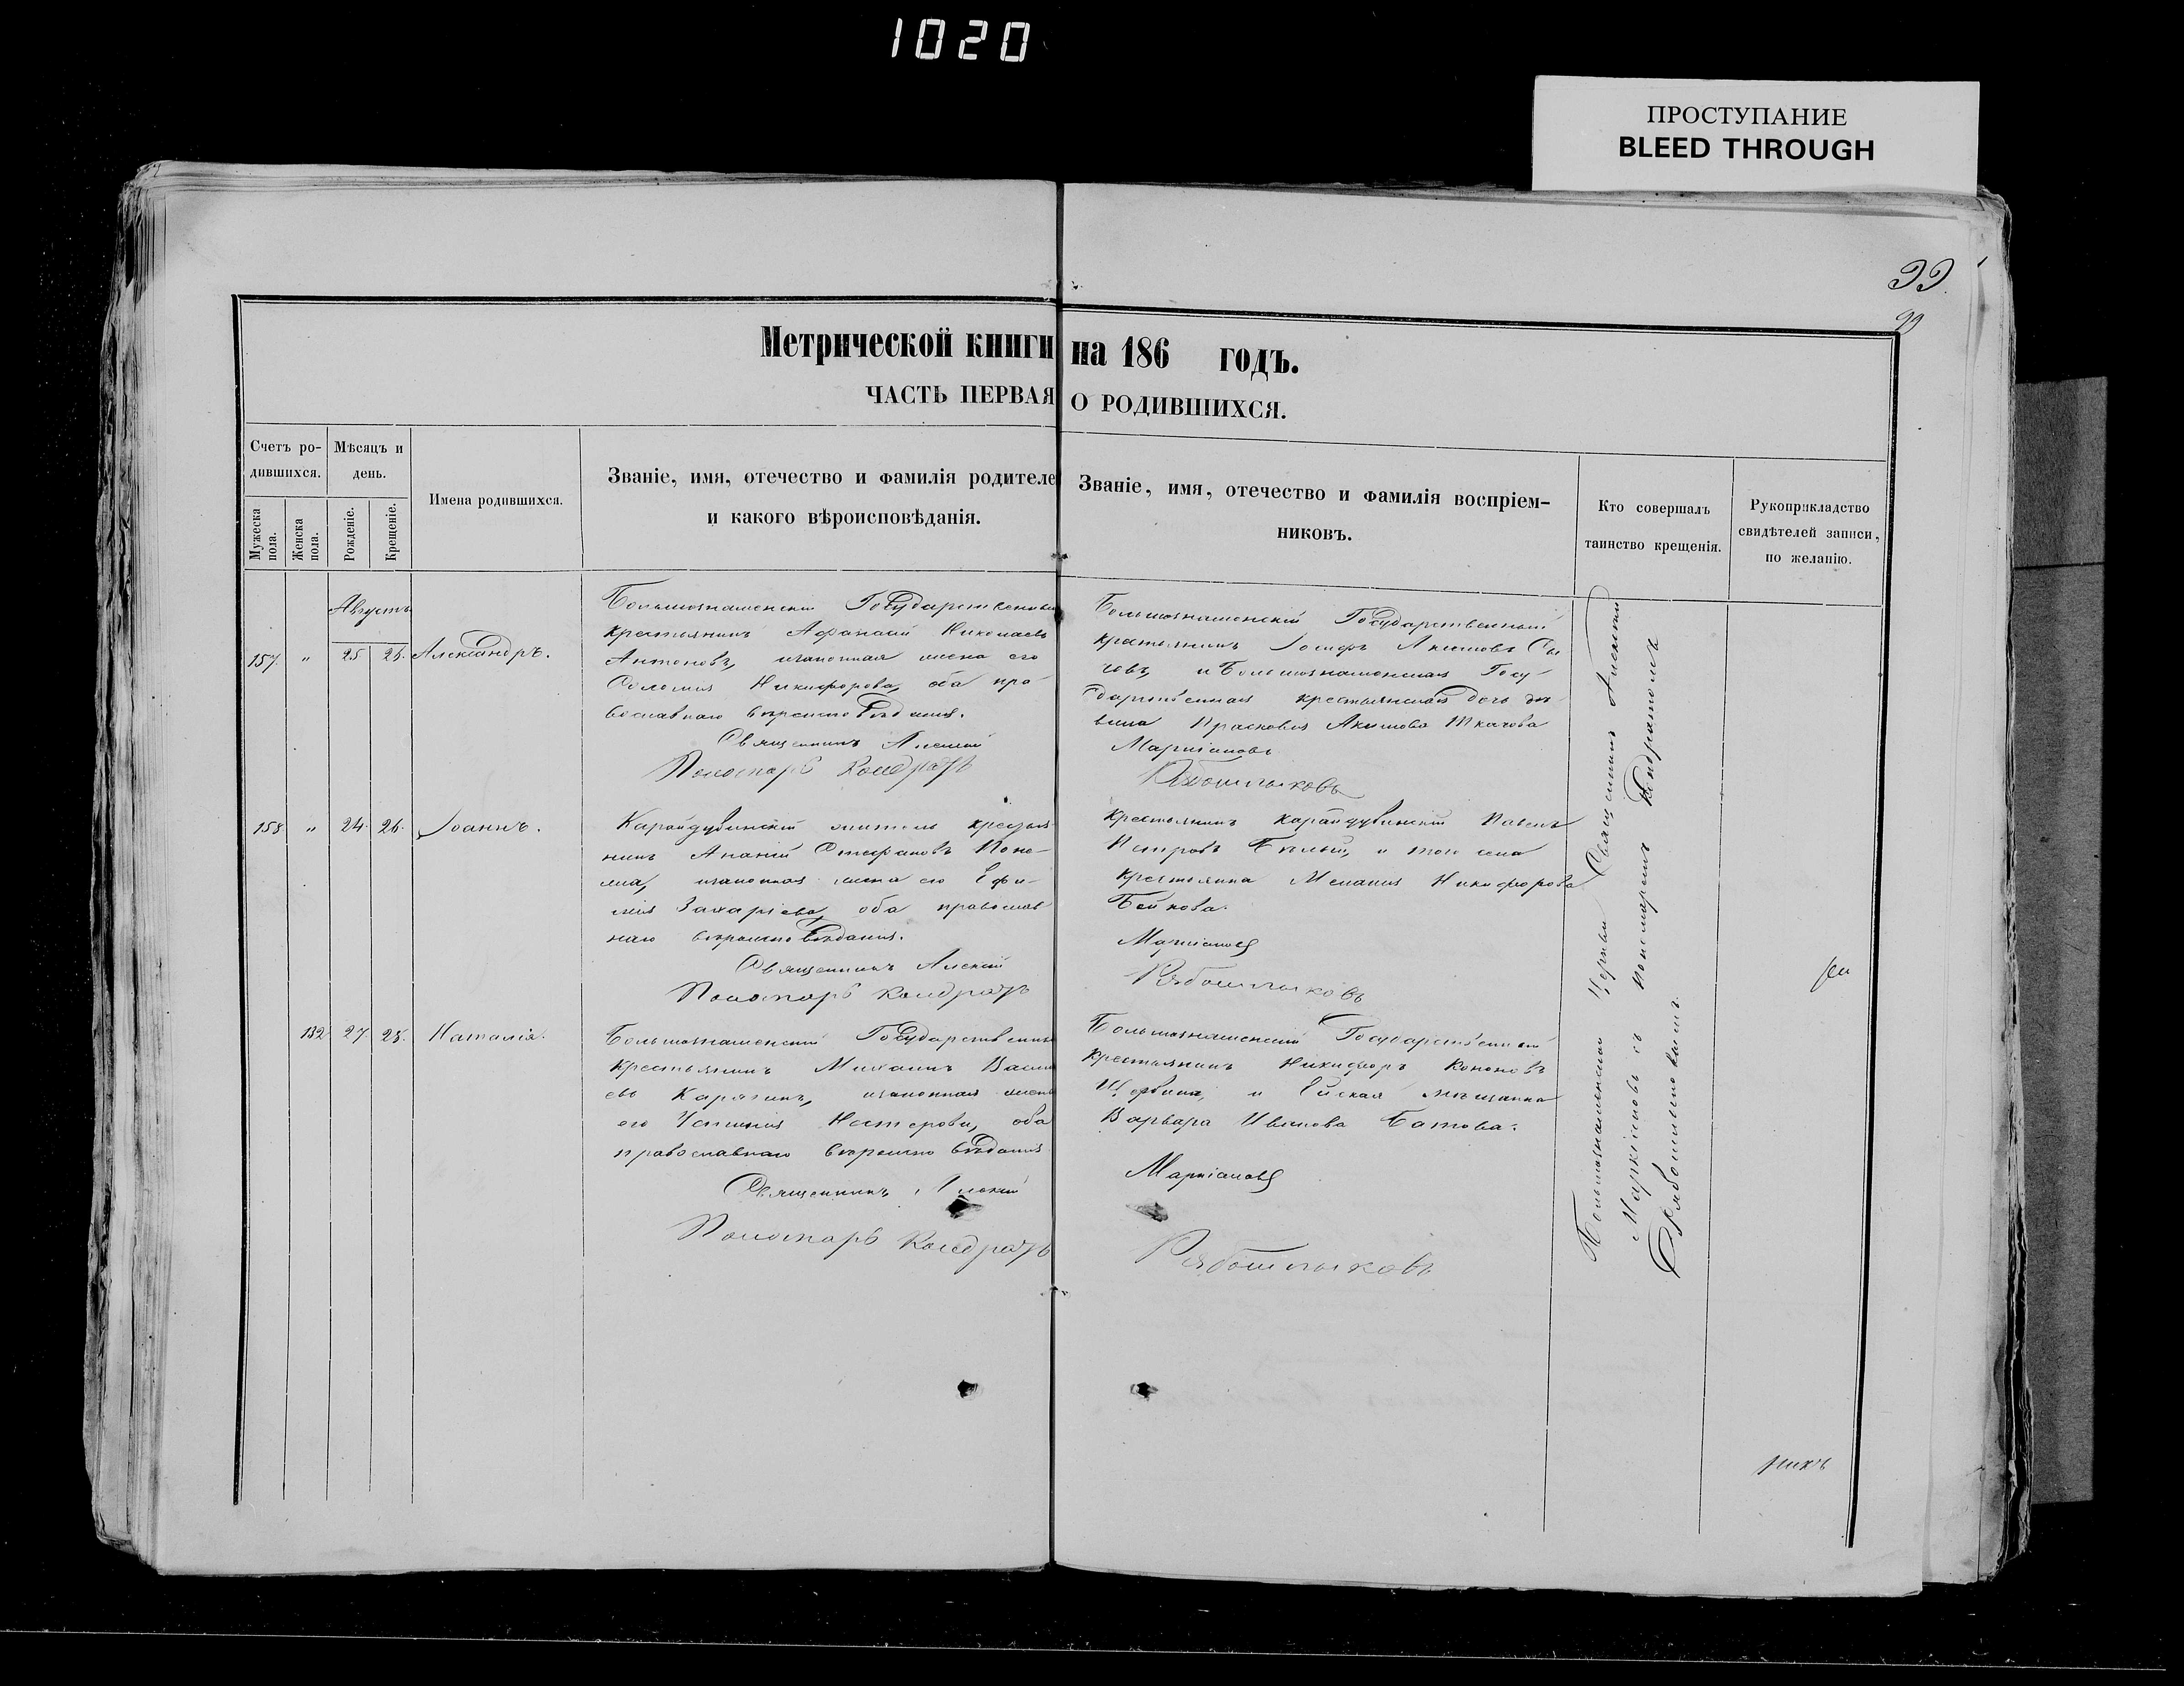 1020
ПРОСТУПАНИЕ
BLEED THROUGH
99.
99
Метрической книги на 186 годъ.
ЧАСТЬ ПЕРВАЯ О РОДИВШИХСЯ.
Счетъ ро-
дившихся.
Мужеска
пола.
Женска
пола.
Мѣсяцъ и
день.
Рожденіе.
Крещеніе.
Имена родившихся.
Званіе, имя, отечество и фамилія родителе
и какого вѣроисповѣданія.
Званіе, имя, отечество и фамилія воспріем-
никовъ.
Кто совершалъ
таинство крещенія.
Рукоприкладство
свидѣтелей записи,
по желанію.
Августъ
157. " 25. 26. Александръ.
Большознаменскій Государственный
крестьянинъ Афанасій Николаевъ
Антоновъ, и законная жена его
Соломія Никифорова, оба пра-
вославнаго вѣроисповѣданія.
Священникъ Алексій
Пономарь Кондратъ
Большознаменскій Государственный
крестьянинъ Іосифъ Акимовъ Сы
чевъ, и Большознаменская Госу-
дарственная крестьянская дочь дѣ
вица Прасковія Акимова Ткачова
Маркіановъ
Рябошлыковъ
158. " 24. 26. Іоаннъ.
Карайдубинскій житель крестья
нинъ Ананій Стефановъ
законная жена его Ефи-
мія Захаріева, оба православ
наго вѣроисповѣданія.
Священникъ Алексій
Пономарь Кондратъ
Крестьянинъ Карайдубинскій Павелъ
Петровъ Бѣлый, и того села
крестьянка Меланія Никифорова
Бойкова.
Маркіановъ
Рябошлыковъ
132. 27. 28. Наталія.
Большознаменскій Государственны
крестьянинъ Михаилъ Васил
евъ Карягинъ, и законная жена
его Устинія Нестерова, оба
православнаго вѣроисповѣданія
Священникъ Алексій
Пономарь Кондратъ
Большознаменскій Государственный
крестьянинъ Никифоръ Кононовъ
Щербина, и Ейская мѣщанка
Варвара Иванова Батова.
Маркіановъ
Рябошлыковъ
Большознаменской Церкви Священникъ Алексій
Маркіановъ съ пономаремъ Кондратомъ
Рябошлыковымъ.